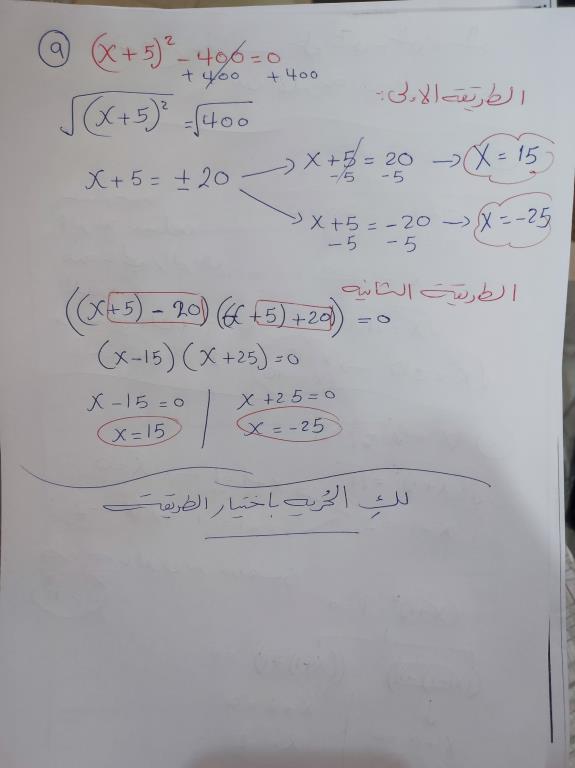 9 (x+5)² - 400 = 0
+400 +400
الطريقة الاولى:
√(x+5)² = √400
x+5 = ±20 → x+5 = 20 → x = 15
-5 -5
→ x+5 = -20 → x = -25
-5 -5
الطريقة الثانيه
((x+5) - 20) ((x+5) + 20) = 0
(x-15) (x+25) = 0
x-15 = 0 | x+25 = 0
x = 15 | x = -25
لكِ الحُريه باختيار الطريقة